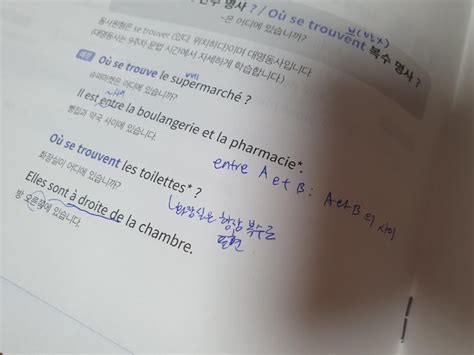 단수 명사 ? / Où se trouvent 복수 명사 ?
브(발X)
-은 어디에 있습니까?
동사원형은 se trouver (있다, 위치하다)이며 대명동사입니다.
(대명동사는 9주차 문법 시간에서 자세하게 학습합니다.)
Où se trouve le supermarché ?
슈퍼마켓은 어디에 있습니까?
Il est entre la boulangerie et la pharmacie*.
사이
빵집과 약국 사이에 있습니다.
entre A et B : A와 B의 사이
Où se trouvent les toilettes* ?
화장실이 어디에 있습니까?
화장실은 항상 복수로
표현
Elles sont à droite de la chambre.
방 오른쪽에 있습니다.